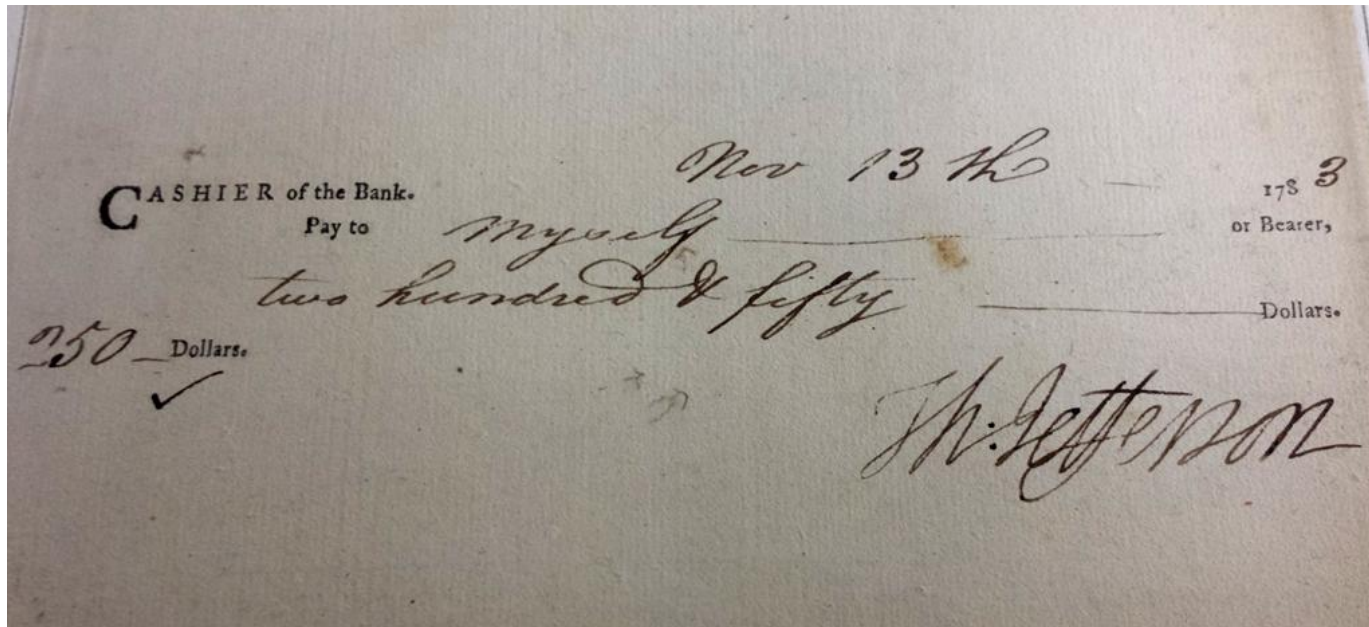 Nov 13th 1783
CASHIER of the Bank.
Pay to myself or Bearer,
two hundred & fifty Dollars.
250 Dollars.
Th: Jefferson